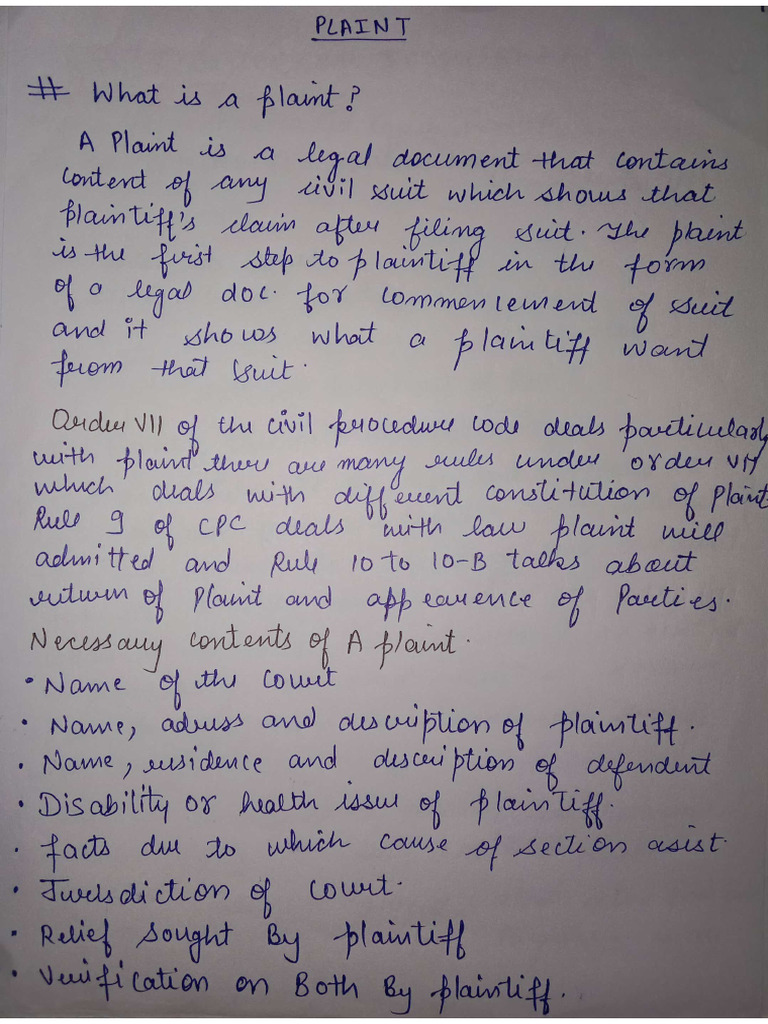 PLAINT
# What is a plaint?
A Plaint is a legal document that contains
content of any civil suit which shows that
plaintiff's claim after filing suit. The plaint
is the first step to plaintiff in the form
of a legal doc. for commencement of suit
and it shows what a plaintiff want
from that suit.
Order VII of the civil procedure code deals particularly
with plaint there are many rules under order VII
which deals with different constitution of Plaint.
Rule 9 of CPC deals with law plaint will
admitted and Rule 10 to 10-B talks about
return of Plaint and appearence of Parties.
Necessary contents of A plaint.
• Name of the court
• Name, adress and description of plaintiff.
• Name, residence and description of defendent
• Disability or health issue of plaintiff.
• facts due to which cause of section asist.
• Jurisdiction of court.
• Relief sought By plaintiff
• Verification on Both By plaintiff.